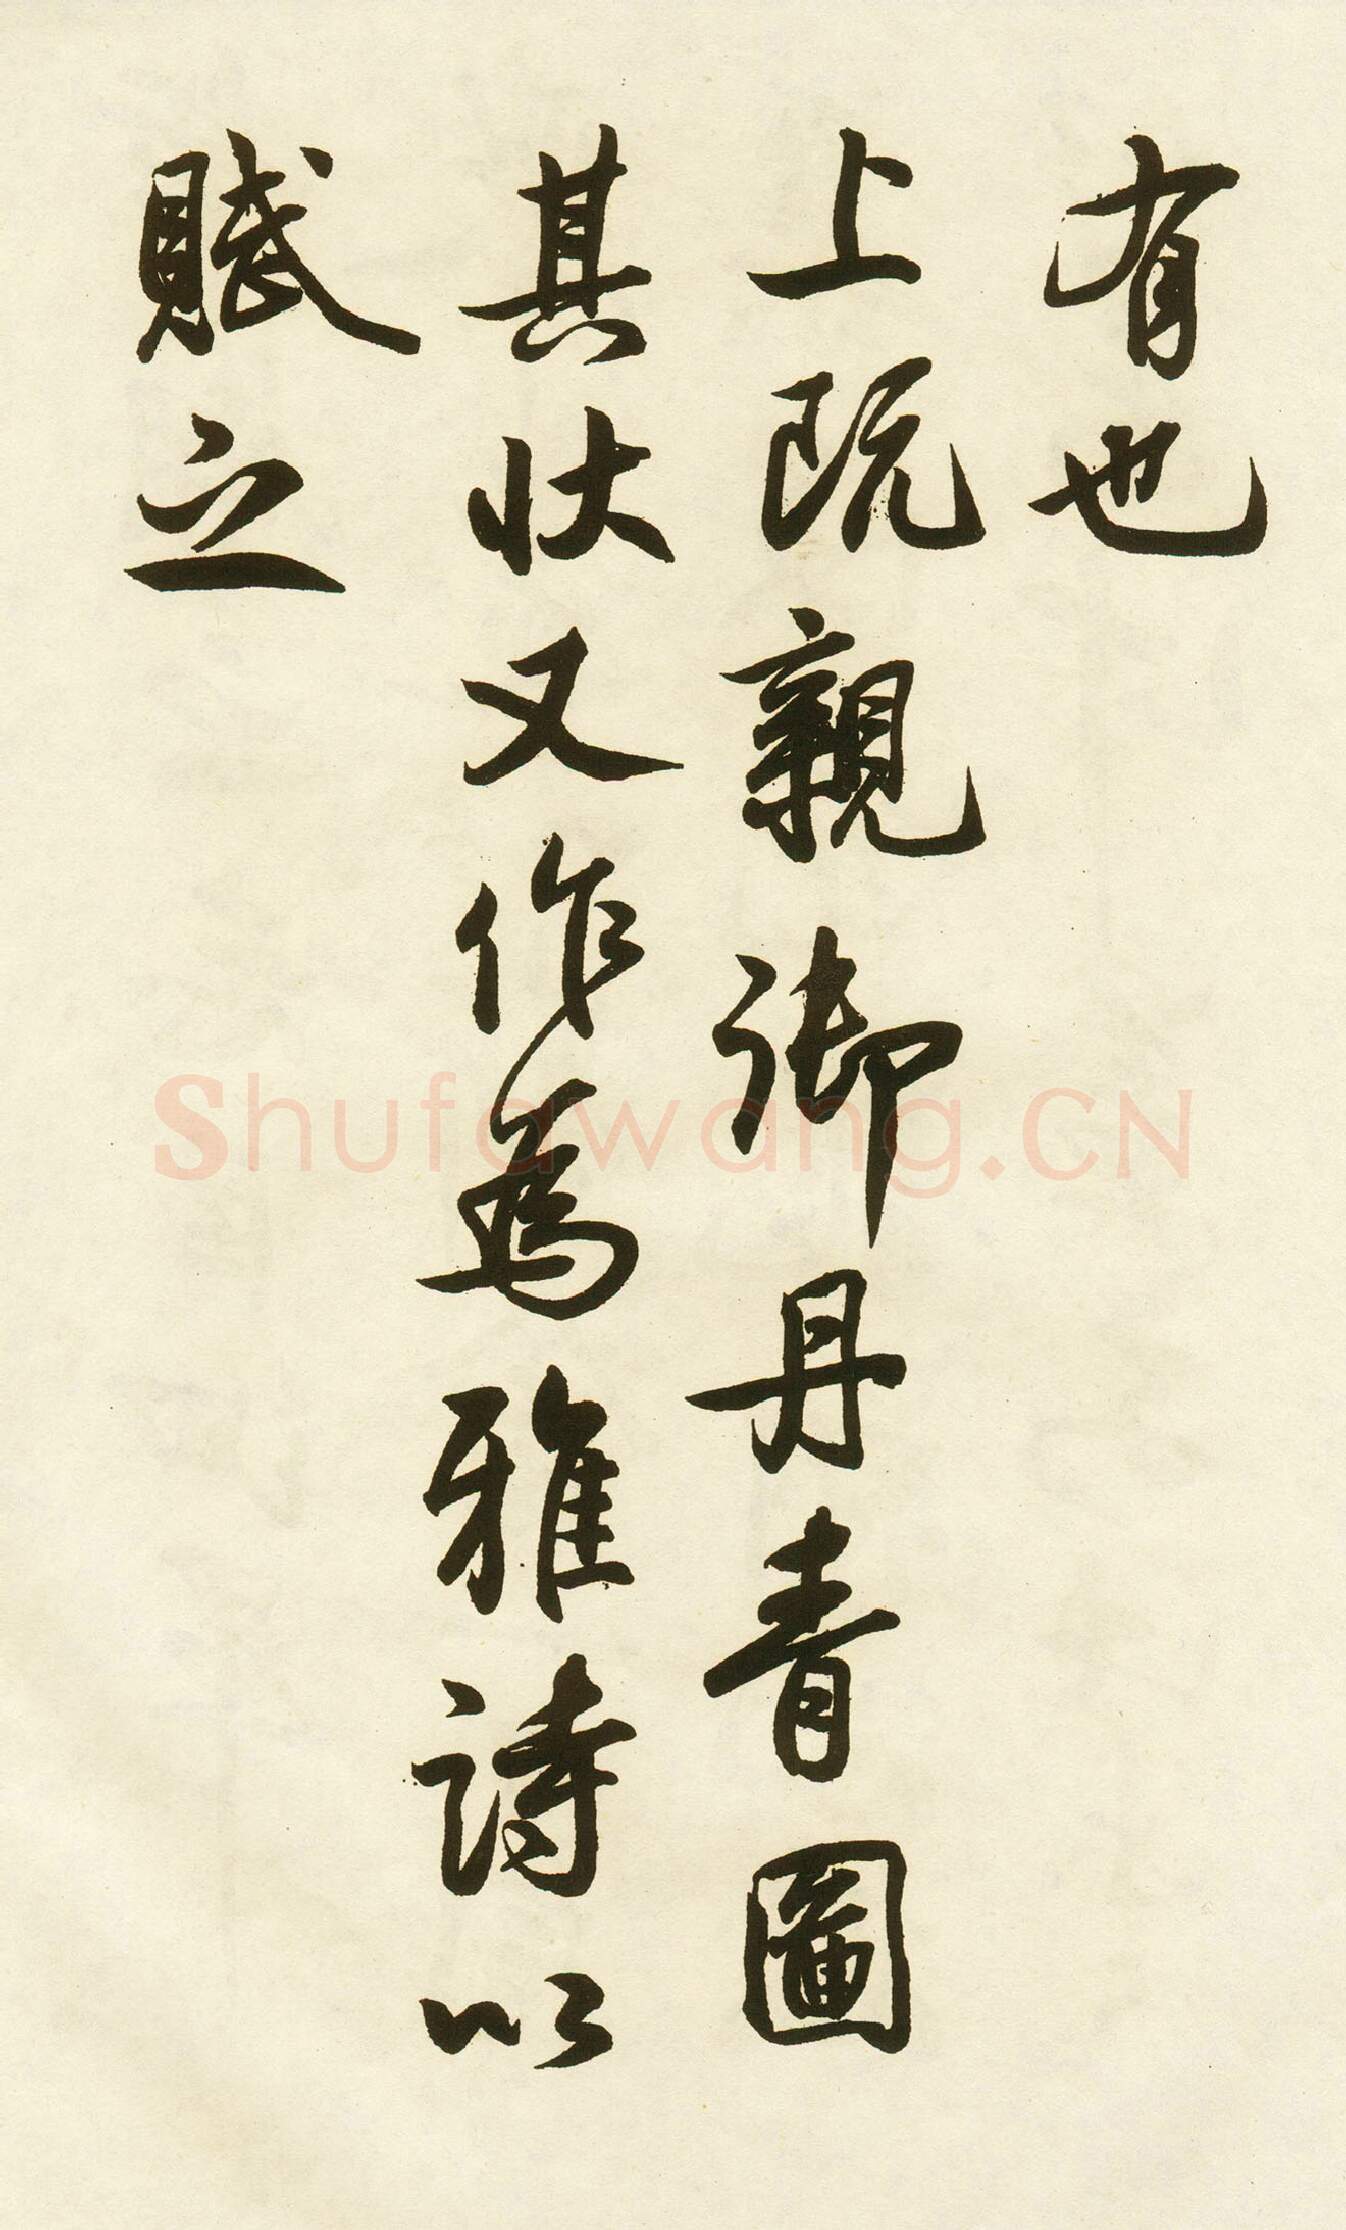 有也
上既親御丹青圖
其状又作為雅詩以
賦之
Shufawang.CN